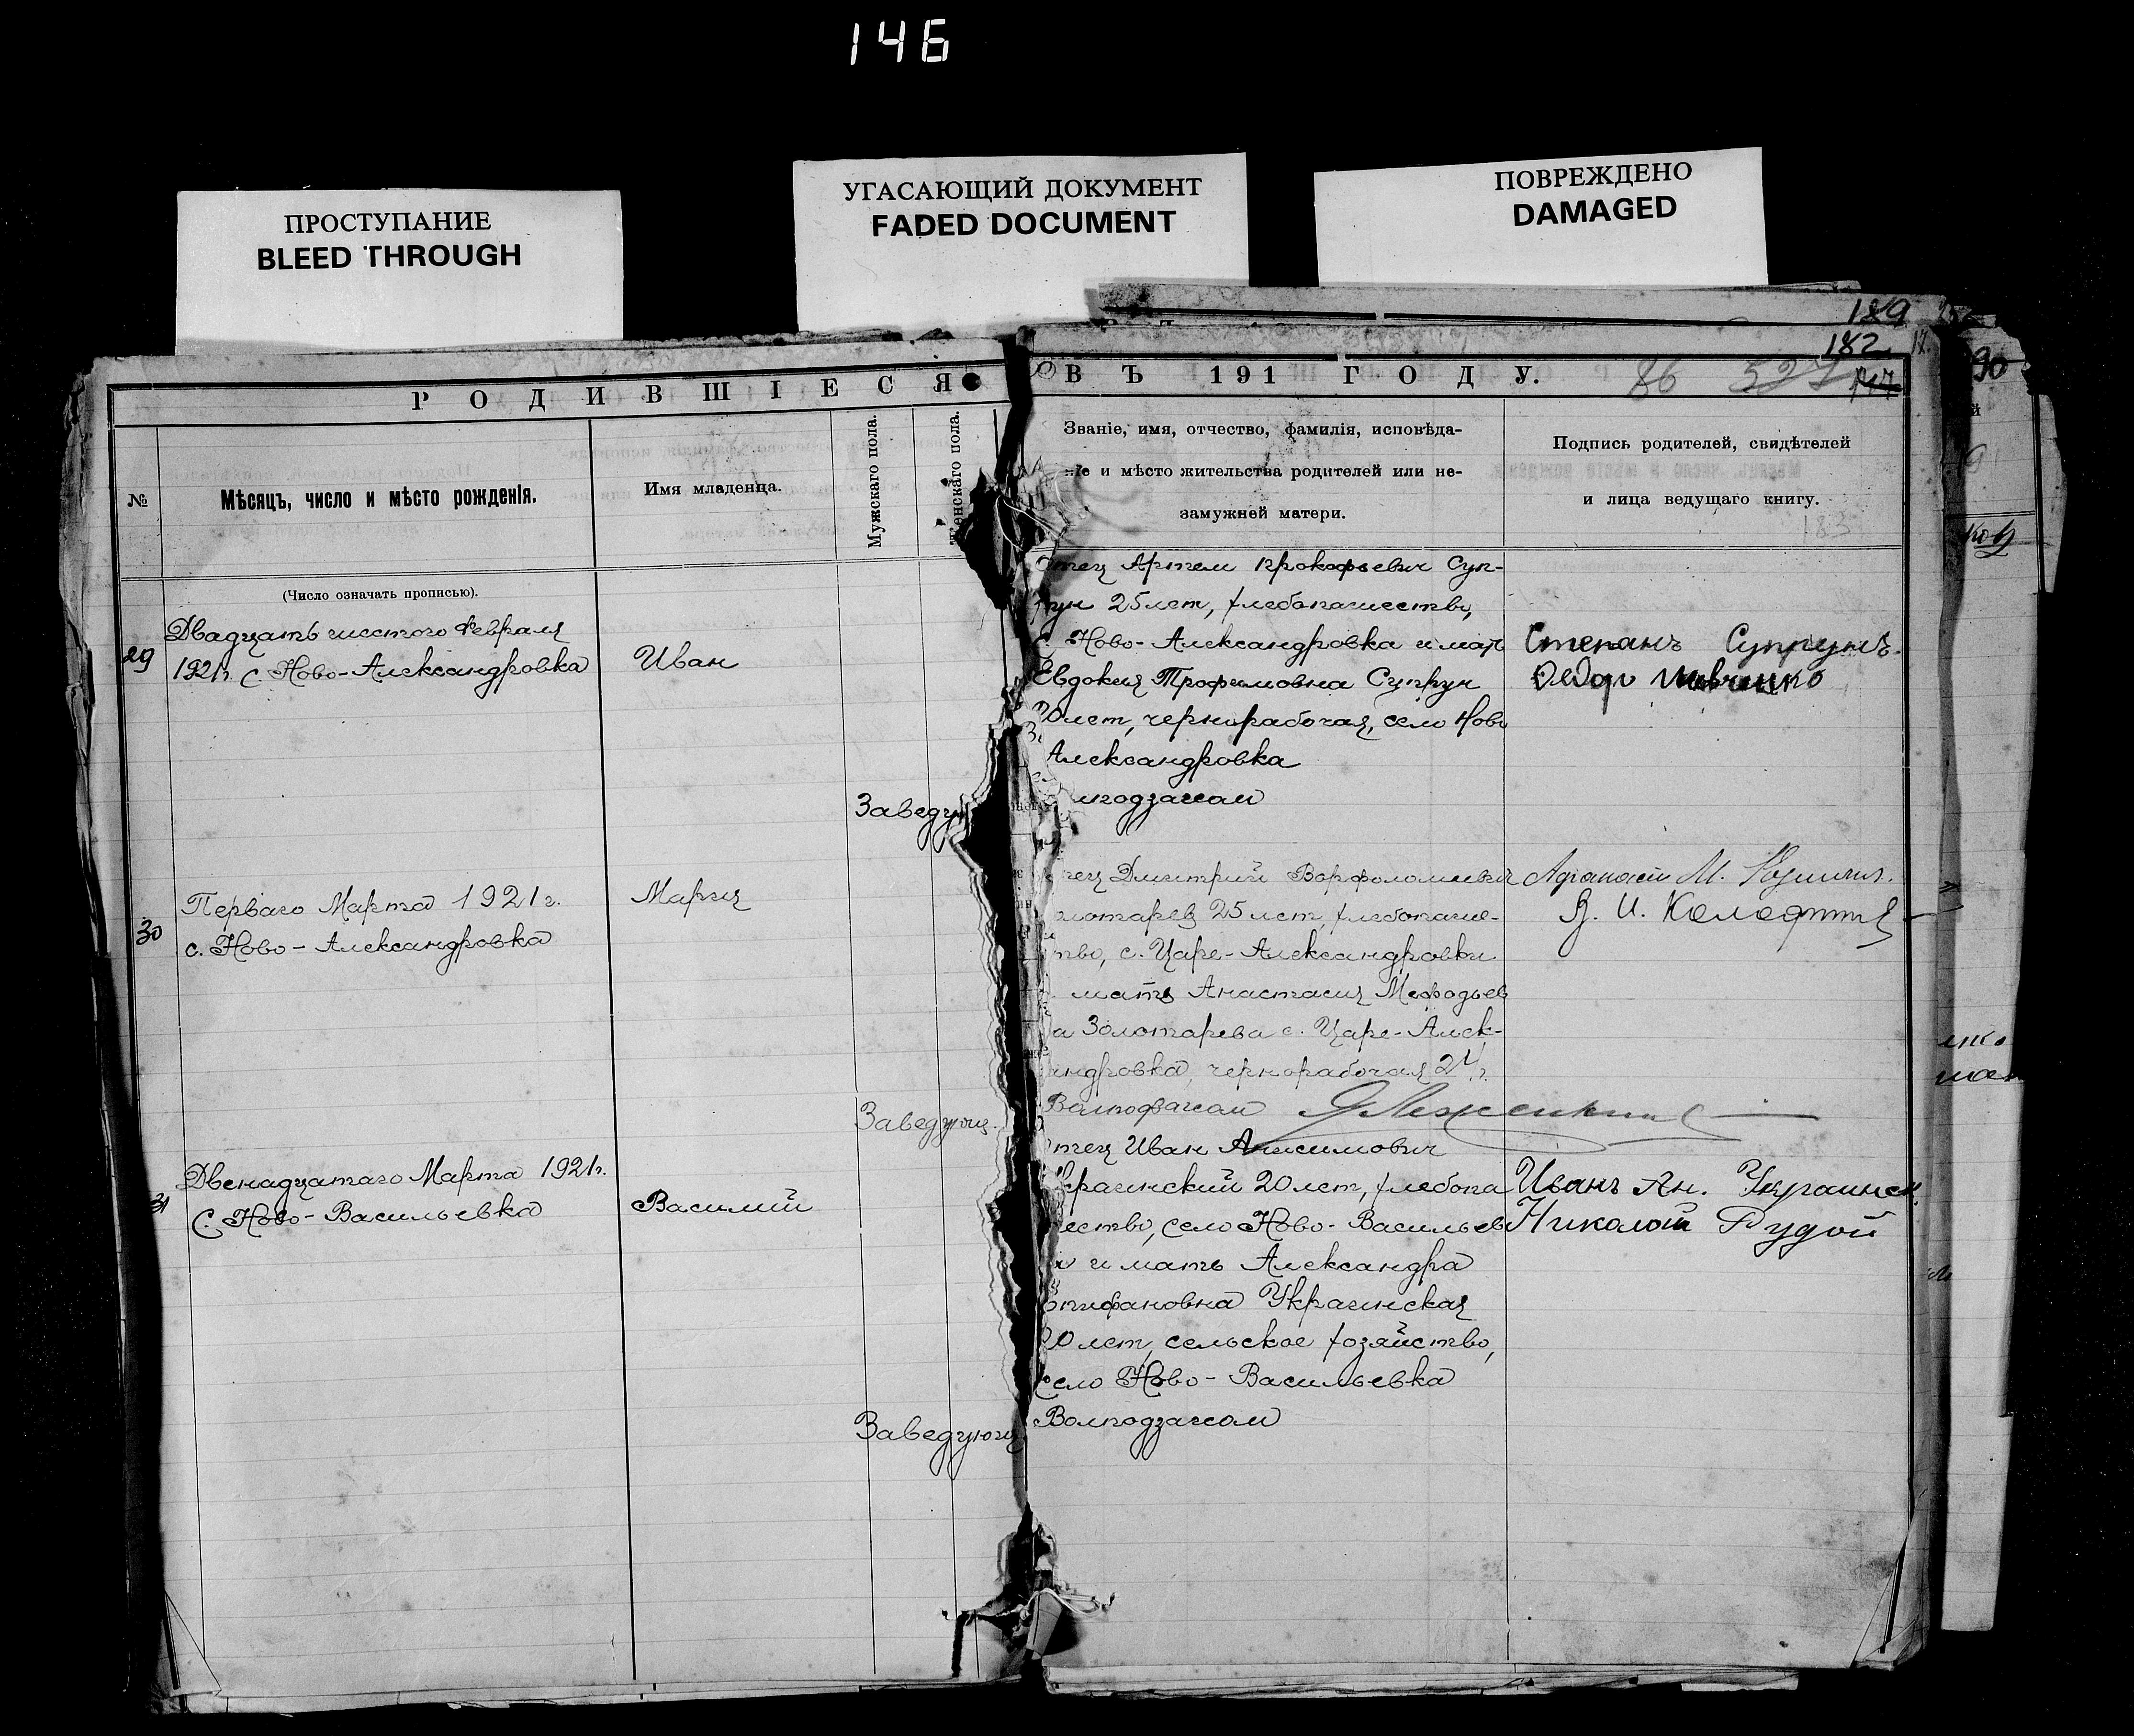 146
ПРОСТУПАНИЕ
BLEED THROUGH
УГАСАЮЩИЙ ДОКУМЕНТ
FADED DOCUMENT
ПОВРЕЖДЕНО
DAMAGED
189
182
90
РОДИВШІЕСЯ
ВЪ 191 ГОДУ.
86 527
№
Мѣсяцъ, число и мѣсто рожденія.
Имя младенца.
Мужскаго пола.
Женскаго пола.
Званіе, имя, отчество, фамилія, исповѣда-
ніе и мѣсто жительства родителей или не-
замужней матери.
Подпись родителей, свидѣтелей
и лица ведущаго книгу.
183
(Число означать прописью).
29
Двадцать шестого Февраля
1921г. с. Ново-Александровка
Иван
Отец Артем Прокофьевич Суп-
рун 25 лет, хлебопашество,
с. Ново-Александровка и мать
Евдокия Трофимовна Супрун
20 лет, чернорабочая, село Ново
Александровка
Степанъ Супрунъ.
Федор Шевченко
Заведую
лподзагсом
30
Перваго Марта 1921г.
с. Ново-Александровка
Мария
тец Дмитрий Варфоломеевич
олотарев 25 лет, хлебопаше-
тво, с. Царе-Александровки
мать Анастасия Мефодьев
а Золотарева с. Царе-Алек-
андровка, чернорабочая 24 г.
Афанасий М.
И.
Заведующ.
Волподзагсом
31
Двенадцатаго Марта 1921г.
С. Ново-Васильевка
Василий
тец Иван Анисимович
Украинский 20 лет, хлебопа
ество, село Ново-Васильев
и мать Александра
Епифановна Украинская
20 лет, сельское хозяйство,
село Ново-Васильевка
Иванъ Ан. Украинск.
Николай Рудой
Заведующ
Волподзагсом